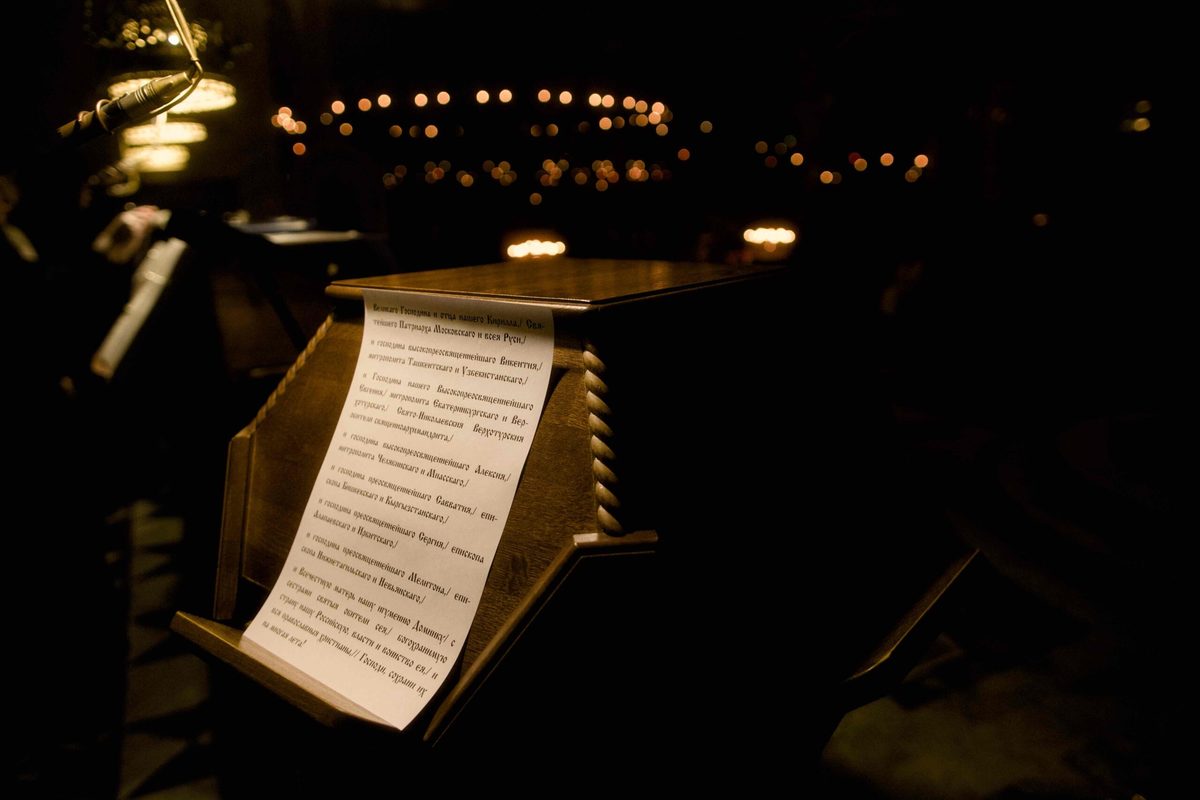 Великаго Господина и отца нашего Кирилла,/ Свя-
тейшего Патриарха Московскаго и всея Руси,/
и господина высокопреосвященнейшаго Викентия,/
митрополита Ташкентскаго и Узбекистанскаго,/
и Господина нашего Высокопреосвященнейшаго
Евгения,/ митрополита Екатеринбургскаго и Вер-
хотурскаго,/ Свято-Николаевския Верхотурския
обители священноархимандрита,/
и господина высокопреосвященнейшаго Алексия,/
митрополита Челябинскаго и Миасскаго,/
и господина преосвященнейшаго Савватия,/ епи-
скопа Бишкекскаго и Кыргызстанскаго,/
и господина преосвященнейшаго Сергия,/ епископа
Алапаевскаго и Ирбитскаго,/
и господина преосвященнейшаго Мелитона,/ епи-
скопа Нижнетагильскаго и Невьянскаго,/
и Всечестную матерь нашу игумению Домнику/ с
сестрами святыя обители сея,/ богохранимую
страну нашу Российскую, власти и воинство ея,/ и
вся православныя христианы.// Господи, сохрани их
на многая лета!